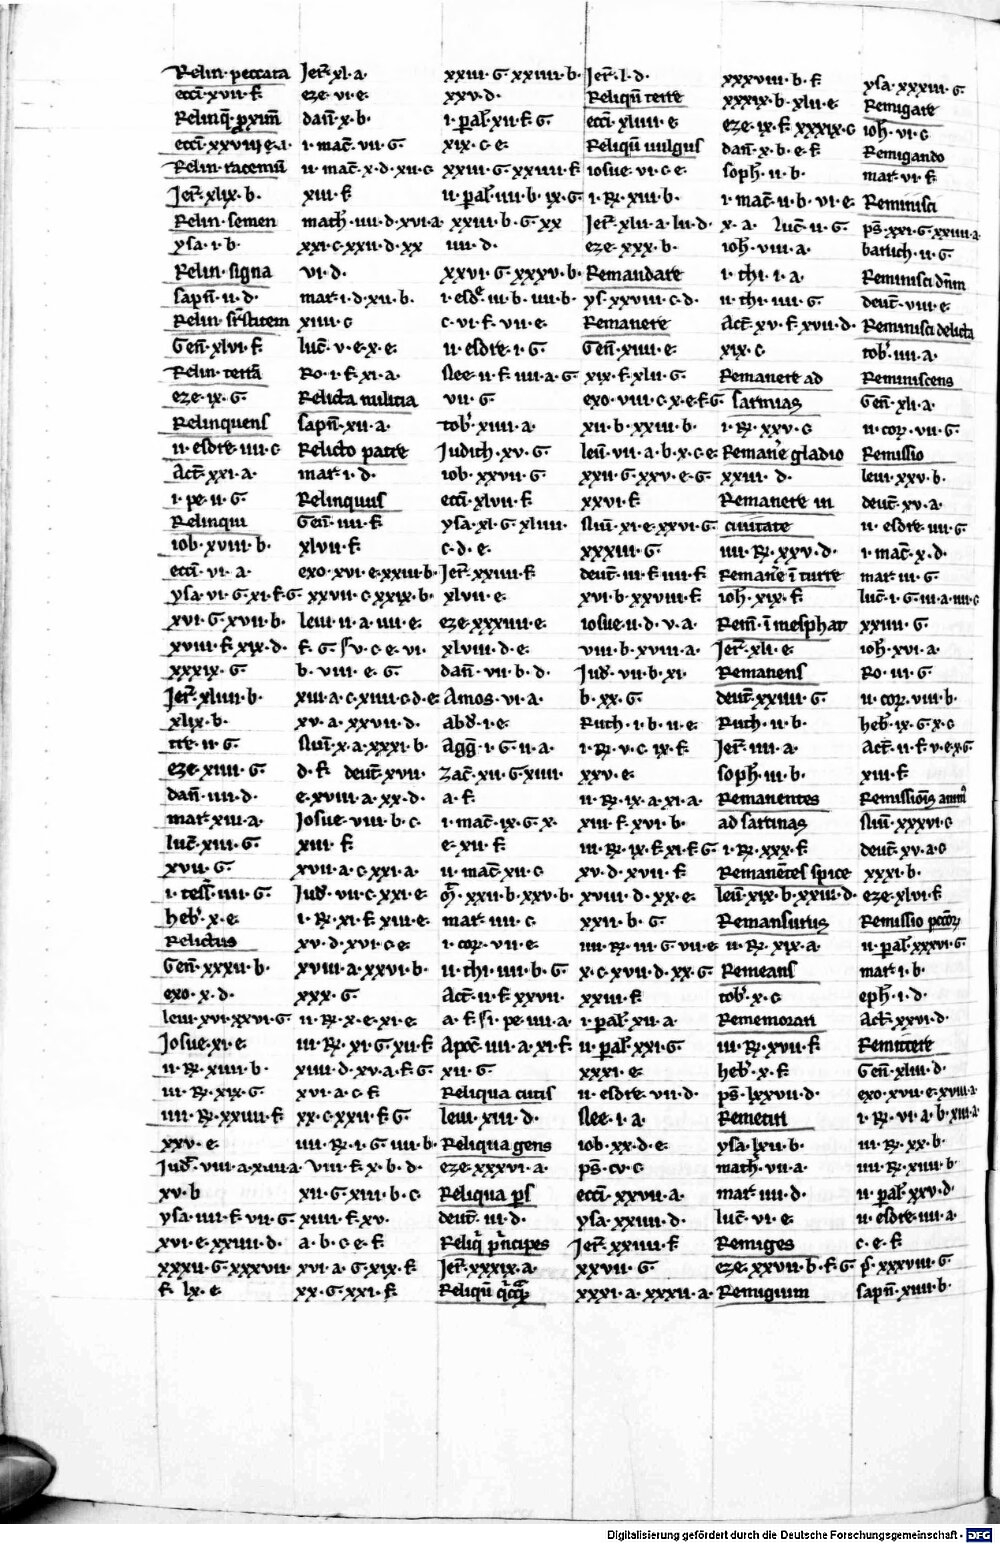 Relin· peccata
eccī· xvii· f·
Relinq̄· ꝓximū
eccī· xxviii· e· a·
Relin· racemū
Jer̄· xlix· b·
Relin· semen
ysa· i· b·
Relin· signa
sapn̄· ii· d·
Relin· sr̄stitem
Gen̄· xlvi· f·
Relin· terrā
eze· ix· G·
Relinquens
ii· esdre· iiii· c
Act̄· xxi· a·
i· pe· ii· G·
Relinqui
iob· xviii· b·
eccī· vi· a·
ysa· vi· G· xi· f· G
xvi· G· xvii· b·
xviii· f· xix· d·
xxxix· G·
Jer̄· xliiii· b·
xlix· b·
tre· ii· G·
eze· xiiii· G·
dan̄· iiii· d·
mar̄· xiii· a·
luc̄· xiii· G·
xvii· G·
i· tess̄· iiii· G·
heb̄· x· e·
Relictus
Gen̄· xxxii· b·
exo· x· d·
leui· xvi· xxvi· G·
Josue· xi· e·
ii· R̨· xiii· b·
iii· R̨· xix· G·
iiii· R̨· xxiii· f·
xxv· e·
Jud̄· viii· a· xiiii· a·
xv· b
ysa· iiii· f· vii· G·
xvi· e· xxiiii· d·
xxxii· G· xxxvii·
f· lx· e·
Jer̄· xl· a·
eze· vi· e·
dan̄· x· b·
i· mac̄· vii· G·
ii· mac̄· x· d· xii· c
xiii· f
math̄· iiii· d· xvi· a·
xxi· c· xxii· d· xx
vi· d·
mar̄· i· d· xii· b·
xiiii· c
luc̄· v· e· x· e·
Ro· i· f· xi· a·
Relicta militia
sapn̄· xii· a·
Relicto patre
mar̄· i· d·
Relinquis
Gen̄· iii· f·
xlvii· f·
exo· xvi· e· xxiii· b·
xxvii· c· xxix· b·
leui· ii· a· iiii· e·
b· viii· e· G·
xiii· a· c· xiiii· c· d· e·
xv· a· xxvii· d·
Nūi· x· a· xxxi· b·
d· f· deut̄· xvii·
e· xviii· a· xx· d·
Josue· viii· b· c·
xiii· f·
xvii· a· c· xxi· a·
Jud̄· vii· c· xxi· e·
i· R̨· xi· f· xiii· e·
xv· d· xvi· c· e·
xviii· a· xxvi· b·
xxx· G·
ii· R̨· x· e· xi· e·
iii· R̨· xi· G· xii· f
xiiii· d· xv· a· f· G
xvi· a· c· f·
xx· c· xxii· f· G·
iiii· R̨· i· G· iiii· b·
viii· f· x· b· d·
xii· G· xiii· b· c·
xiiii· f· xv·
a· b· c· e· f·
xvi· a· G· xix· f·
xx· G· xxi· f·
xxiii· G· xxiiii· b·
xxv· d·
i· pal̄· xii· f· G·
xix· c· e·
xxiii· G· xxviii· f
ii· pal̄· iiii· b· ix· G
xxiii· b· G· xx
iiii· d·
xxvi· G· xxxv· b·
i· esd̄· iii· b· iiii· b·
c· vi· f· vii· e·
ii· esdre· i· G·
Nee· ii· f· iiii· a· G·
vii· G·
tob̄· xiiii· a·
Judith· xv· G·
iob· xxvii· G·
eccī· xlvii· f·
ysa· xl· G· xliiii·
c· d· e·
Jer̄· xxiiii· f·
xlvii· e·
eze· xxxiiii· e·
xlviii· d· e·
dan̄· vii· b· d·
Amos· vi· a·
abd̄· i· e·
Agḡ· i· G· ii· a·
zac̄· xii· G· xiiii·
a· f·
i· mac̄· ix· G· x·
e· xii· f·
ii· mac̄· xii· c
mar̄· iiii· c·
i· cor̄· vii· e·
ii· thi· iiii· b· G·
Act̄· ii· f· xxvii·
Apoc̄· iiii· a· xi· f·
xii· G·
Reliqua cutis
leui· xiii· d·
Reliqua gens
eze· xxxvi· a·
Reliqua ps
deut̄· iii· d·
Reliq̄ pn̄cipes
Jer̄· xxxix· a·
Jer̄· l· d·
Reliqū terre
eccī· xliiii· e·
Reliqū uulgus
iosue· vi· c· e·
i· R̨· xiii· b·
Jer̄· xlii· a· lii· d·
eze· xxx· b·
Remandare
ys· xxviii· c· d·
Remanere
Gen̄· xiiii· e·
xix· f· xlii· G·
exo· viii· c· x· e· f· G
xii· b· xxiii· b·
leui· vii· a· b· x· c· e·
xxii· G· xxv· e· G·
xxvi· f·
Nūi· xi· e· xxvi· G·
xxxiii· G·
deut̄· iii· f· iiii· f·
xvi· b· xxviii· f·
iosue· ii· d· v· a·
viii· b· xviii· a·
Jud̄· vii· b· xi·
b· xx· G·
Ruth· i· b· ii· e·
i· R̨· v· c· ix· f·
xxv· e·
ii· R̨· ix· a· xi· a·
xiii· f· xvi· b·
iii· R̨· ix· f· xi· f· G
xv· d· xvii· f·
xviii· d· xx· e·
xxii· b· G·
iiii· R̨· iii· G· vii· e·
x· c· xvii· d· xx· G·
xxiii· f·
i· pal̄· xii· a·
ii· pal̄· xxi· G·
xxxi· e·
ii· esdre· vii· d·
Nee· i· a·
iob· xx· d· e·
ps̄· cv· c·
eccī· xxvii· a·
ysa· xxiiii· d·
Jer̄· xxiiii· f·
xxvii· G·
xxxi· a· xxxii· a·
xxxviii· b· f·
xxxix· b· xlii· e·
eze· ix· f· xxxix· c
dan̄· x· b· e· f·
soph̄· ii· b·
i· mac̄· ii· b· vi· e·
x· a· luc̄· ii· G·
ioh̄· viii· a·
i· thi· i· a·
ii· thi· iiii· G·
Act̄· xv· f· xvii· d·
xix· c·
Remanere ad
sarcinas
i· R̨· xxv· c
Reman̄e gladio
xxiii· d·
Remanere in
ciuitate
iiii· R̨· xxv· d·
Reman̄e ī turre
ioh̄· xix· f·
Rem̄· ī mesphat
Jer̄· xli· e·
Remanens
deut̄· xxiiii· G·
Ruth· ii· b·
Jer̄· iiii· a·
soph̄· iii· b·
Remanentes
ad sarcinas
i· R̨· xxx· f·
Remanētes spice
leui· xix· b· xxiii· d·
Remansurus
ii· R̨· xix· a·
Remeans
tob̄· x· c
Rememorari
iii· R̨· xvii· f·
heb̄· x· f·
ps̄· lxxvii· d·
Remetiri
ysa· lxii· b·
math̄· vii· a·
mar̄· iiii· d·
luc̄· vi· e·
Remiges
eze· xxvii· b· f· G
Remigium
ysa· xxxiii· G
Remigare
ioh̄· vi· c
Remigando
mar̄· vi· f·
Reminisci
ps̄· xxi· G· xxiiii· a
baruch· ii· G·
Reminisci dn̄m
deut̄· viii· e·
Reminisci delicta
tob̄· iiii· a·
Reminiscens
Gen̄· xli· a·
ii· cor̄· vii· G·
Remissio
leui· xxv· b·
deut̄· xv· a·
ii· esdre· iiii· G
i· mac̄· x· d·
mar̄· iii· G·
luc̄· i· G· iii· a· iiii· c
xxiiii· G·
ioh̄· xvi· a·
Ro· iii· G·
ii· cor̄· viii· b·
heb̄· ix· G· x· c
Act̄· ii· f· v· e· x· G·
xiii· f·
Nūi· xxxvi· c
deut̄· xv· a· c
xxxi· b·
eze· xlvi· f·
Remissio pccōꝝ
ii· pal̄· xxxvi· G
mar̄· i· b·
eph̄· i· d·
Act̄· xxvi· d·
Remittere
Gen̄· xliii· d·
exo· xvii· e· xviii· a
i· R̨· vi· a· b· xiii· a
iii· R̨· xx· b·
iiii· R̨· xiiii· b·
ii· pal̄· xxv· d·
ii· esdre· iiii· a·
c· e· f·
p̄· xxxviii· G·
sapn̄· xiiii· b·
Digitalisierung gefördert durch die Deutsche Forschungsgemeinschaft - DFG